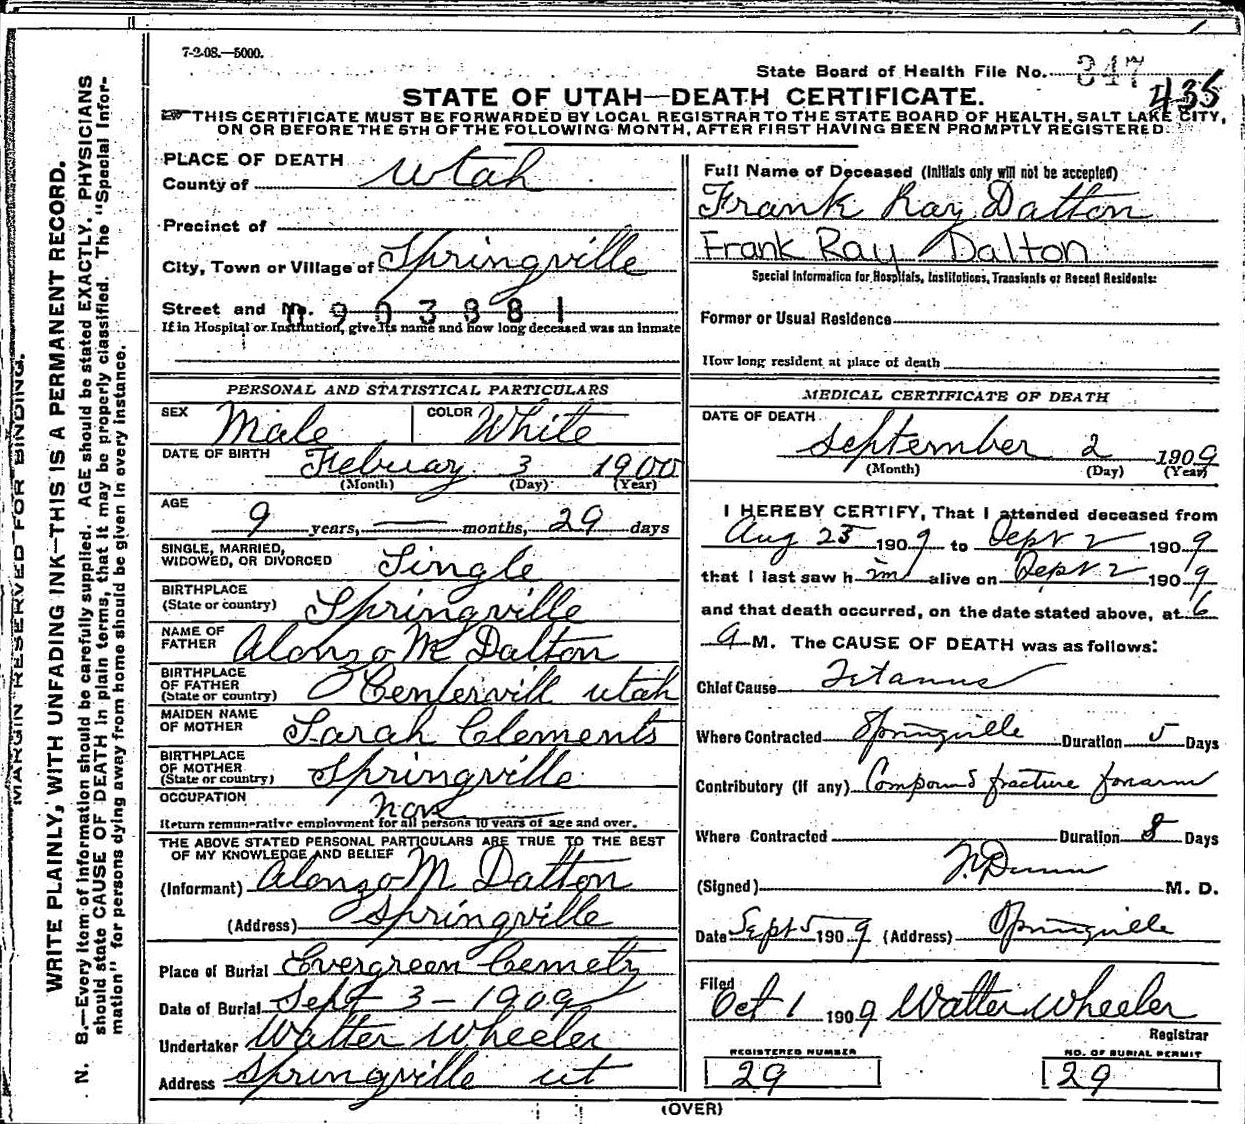 7-2-08.—5000.
State Board of Health File No. 347
435
STATE OF UTAH—DEATH CERTIFICATE.
THIS CERTIFICATE MUST BE FORWARDED BY LOCAL REGISTRAR TO THE STATE BOARD OF HEALTH, SALT LAKE CITY,
ON OR BEFORE THE 5TH OF THE FOLLOWING MONTH, AFTER FIRST HAVING BEEN PROMPTLY REGISTERED.
MARGIN RESERVED FOR BINDING.
WRITE PLAINLY, WITH UNFADING INK—THIS IS A PERMANENT RECORD.
N. B.—Every item of information should be carefully supplied. AGE should be stated EXACTLY. PHYSICIANS
should state CAUSE OF DEATH in plain terms, that it may be properly classified. The "Special Infor-
mation" for persons dying away from home should be given in every instance.
PLACE OF DEATH
County of Utah
Precinct of
City, Town or Village of Springville
Street and No. 0903881
If in Hospital or Institution, give its name and how long deceased was an inmate
PERSONAL AND STATISTICAL PARTICULARS
SEX Male COLOR White
DATE OF BIRTH Febuary 3 1900
(Month) (Day) (Year)
AGE
9 years, — months, 29 days
SINGLE, MARRIED,
WIDOWED, OR DIVORCED Single
BIRTHPLACE
(State or country) Springville
NAME OF
FATHER Alonzo M Dalton
BIRTHPLACE
OF FATHER
(State or country) Centervill utah
MAIDEN NAME
OF MOTHER Sarah Clements
BIRTHPLACE
OF MOTHER
(State or country) Springville
OCCUPATION non
Return remunerative employment for all persons 10 years of age and over.
THE ABOVE STATED PERSONAL PARTICULARS ARE TRUE TO THE BEST
OF MY KNOWLEDGE AND BELIEF
(Informant) Alonzo M Dalton
(Address) Springville
Place of Burial Evergreen Cemetry
Date of Burial Sept 3 - 1909
Undertaker Walter Wheeler
Address Springville ut
Full Name of Deceased (Initials only will not be accepted)
Frank Ray Dalton
Frank Ray Dalton
Special Information for Hospitals, Institutions, Transients or Recent Residents:
Former or Usual Residence
How long resident at place of death
MEDICAL CERTIFICATE OF DEATH
DATE OF DEATH
September 2 1909
(Month) (Day) (Year)
I HEREBY CERTIFY, That I attended deceased from
Aug 25 1909 to Sept 2 1909
that I last saw him alive on Sept 2 1909
and that death occurred, on the date stated above, at 6
a M. The CAUSE OF DEATH was as follows:
Chief Cause Tetanus
Where Contracted Springville Duration 5 Days
Contributory (If any) Compound fracture forearm
Where Contracted Duration 8 Days
(Signed) M. D.
Date Sept 5 1909 (Address) Springville
Filed
Oct 1 1909 Walter Wheeler
Registrar
REGISTERED NUMBER
29
NO. OF BURIAL PERMIT
29
(OVER)